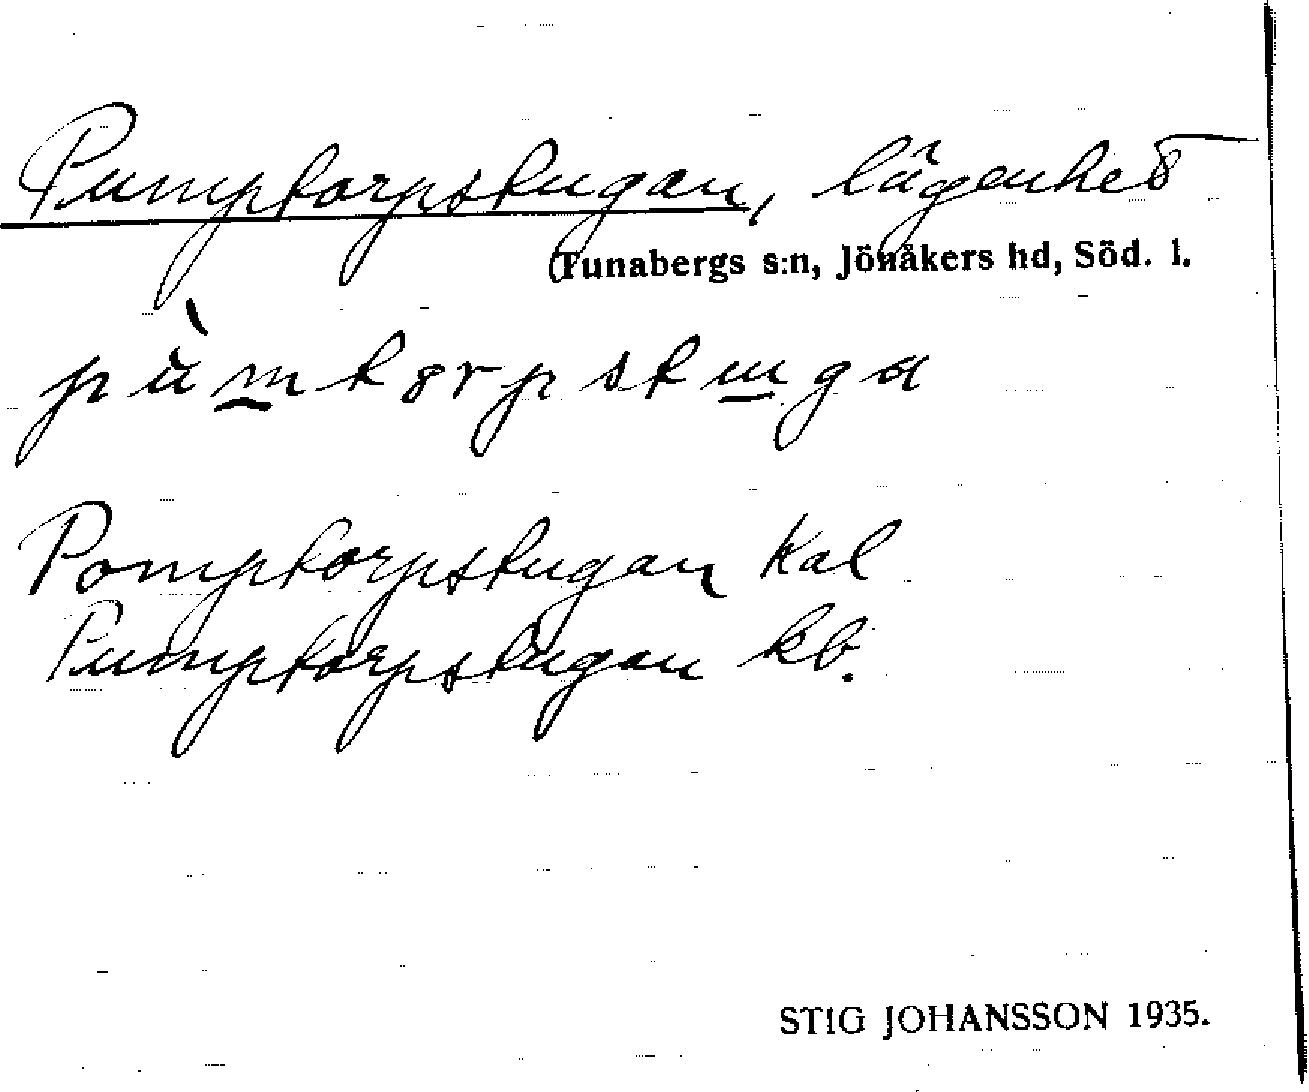 Pumptorpstugan, lägenhet
Tunabergs s:n, Jönåkers hd, Söd. l.
Pomptorpstugan Kal
Pumptorpstugan kb.
STIG JOHANSSON 1935.